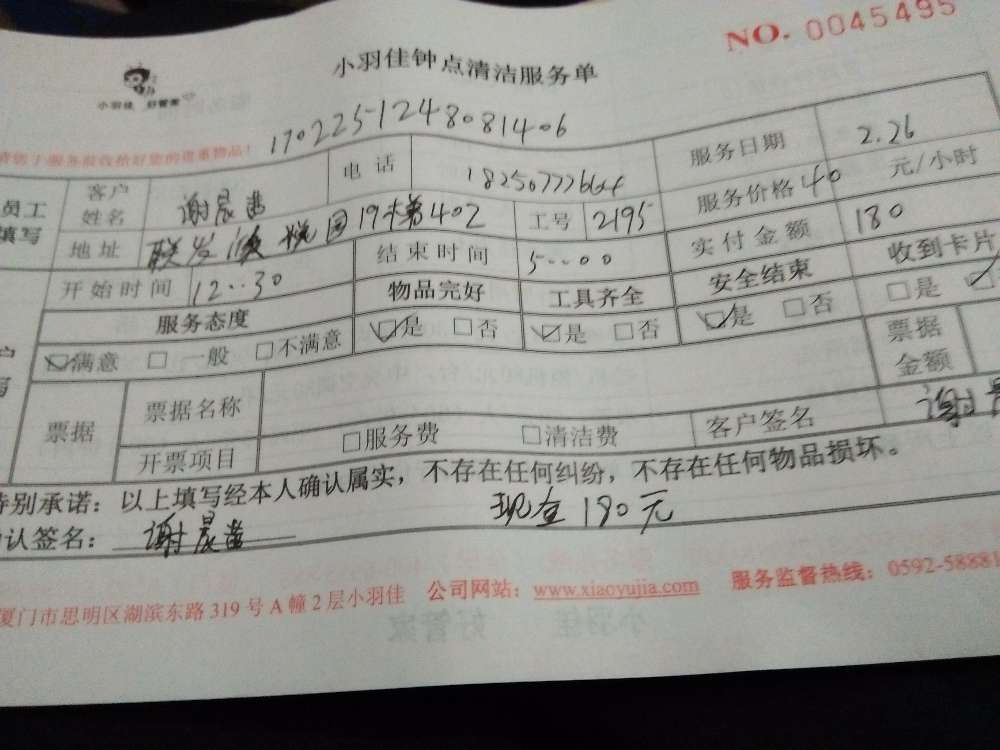 NO. 0045495
小羽佳钟点清洁服务单
小羽佳 好管家
170225124808140６
客户姓名 谢晨 电话 服务日期 2.26
员工填写
地址 联发 园19 402 工号 2195 服务价格 40 元/小时
开始时间 12..30 结束时间 5..00 实付金额 180
服务态度 物品完好 工具齐全 安全结束 收到卡片
☑满意 □一般 □不满意 ☑是 □否 ☑是 □否 ☑是 □否 □是
票据 票据名称 票据金额
开票项目 □服务费 □清洁费 客户签名 谢
特别承诺：以上填写经本人确认属实，不存在任何纠纷，不存在任何物品损坏。
确认签名： 谢晨 现金180元
厦门市思明区湖滨东路319号A幢2层小羽佳 公司网站：www.xiaoyujia.com 服务监督热线：0592-58881